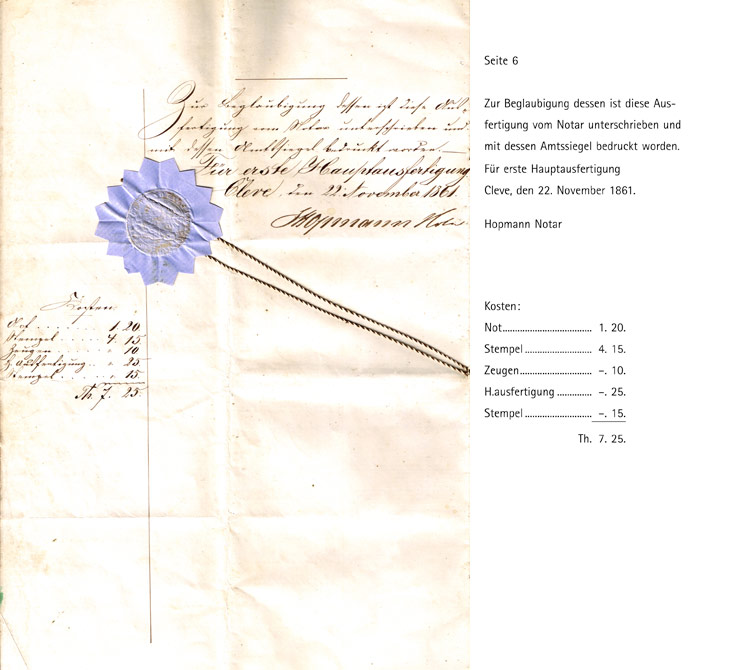 Zur Beglaubigung dessen ist diese Aus-
fertigung vom Notar unterschrieben und
mit dessen Amtssiegel bedruckt worden.
Für erste Hauptausfertigung
Cleve, den 22 November 1861.
Hopmann Notar
Kosten
Not . . . . . 1. 20.
Stempel . . . . 4. 15.
Zeugen . . . . " 10
H. Ausfertigung . . " 25
Stempel . . . . " 15.
Th. 7. 25.
Seite 6
Zur Beglaubigung dessen ist diese Aus-
fertigung vom Notar unterschrieben und
mit dessen Amtssiegel bedruckt worden.
Für erste Hauptausfertigung
Cleve, den 22. November 1861.
Hopmann Notar
Kosten:
Not.................................... 1. 20.
Stempel ........................... 4. 15.
Zeugen............................. –. 10.
H.ausfertigung .............. –. 25.
Stempel ........................... –. 15.
Th. 7. 25.